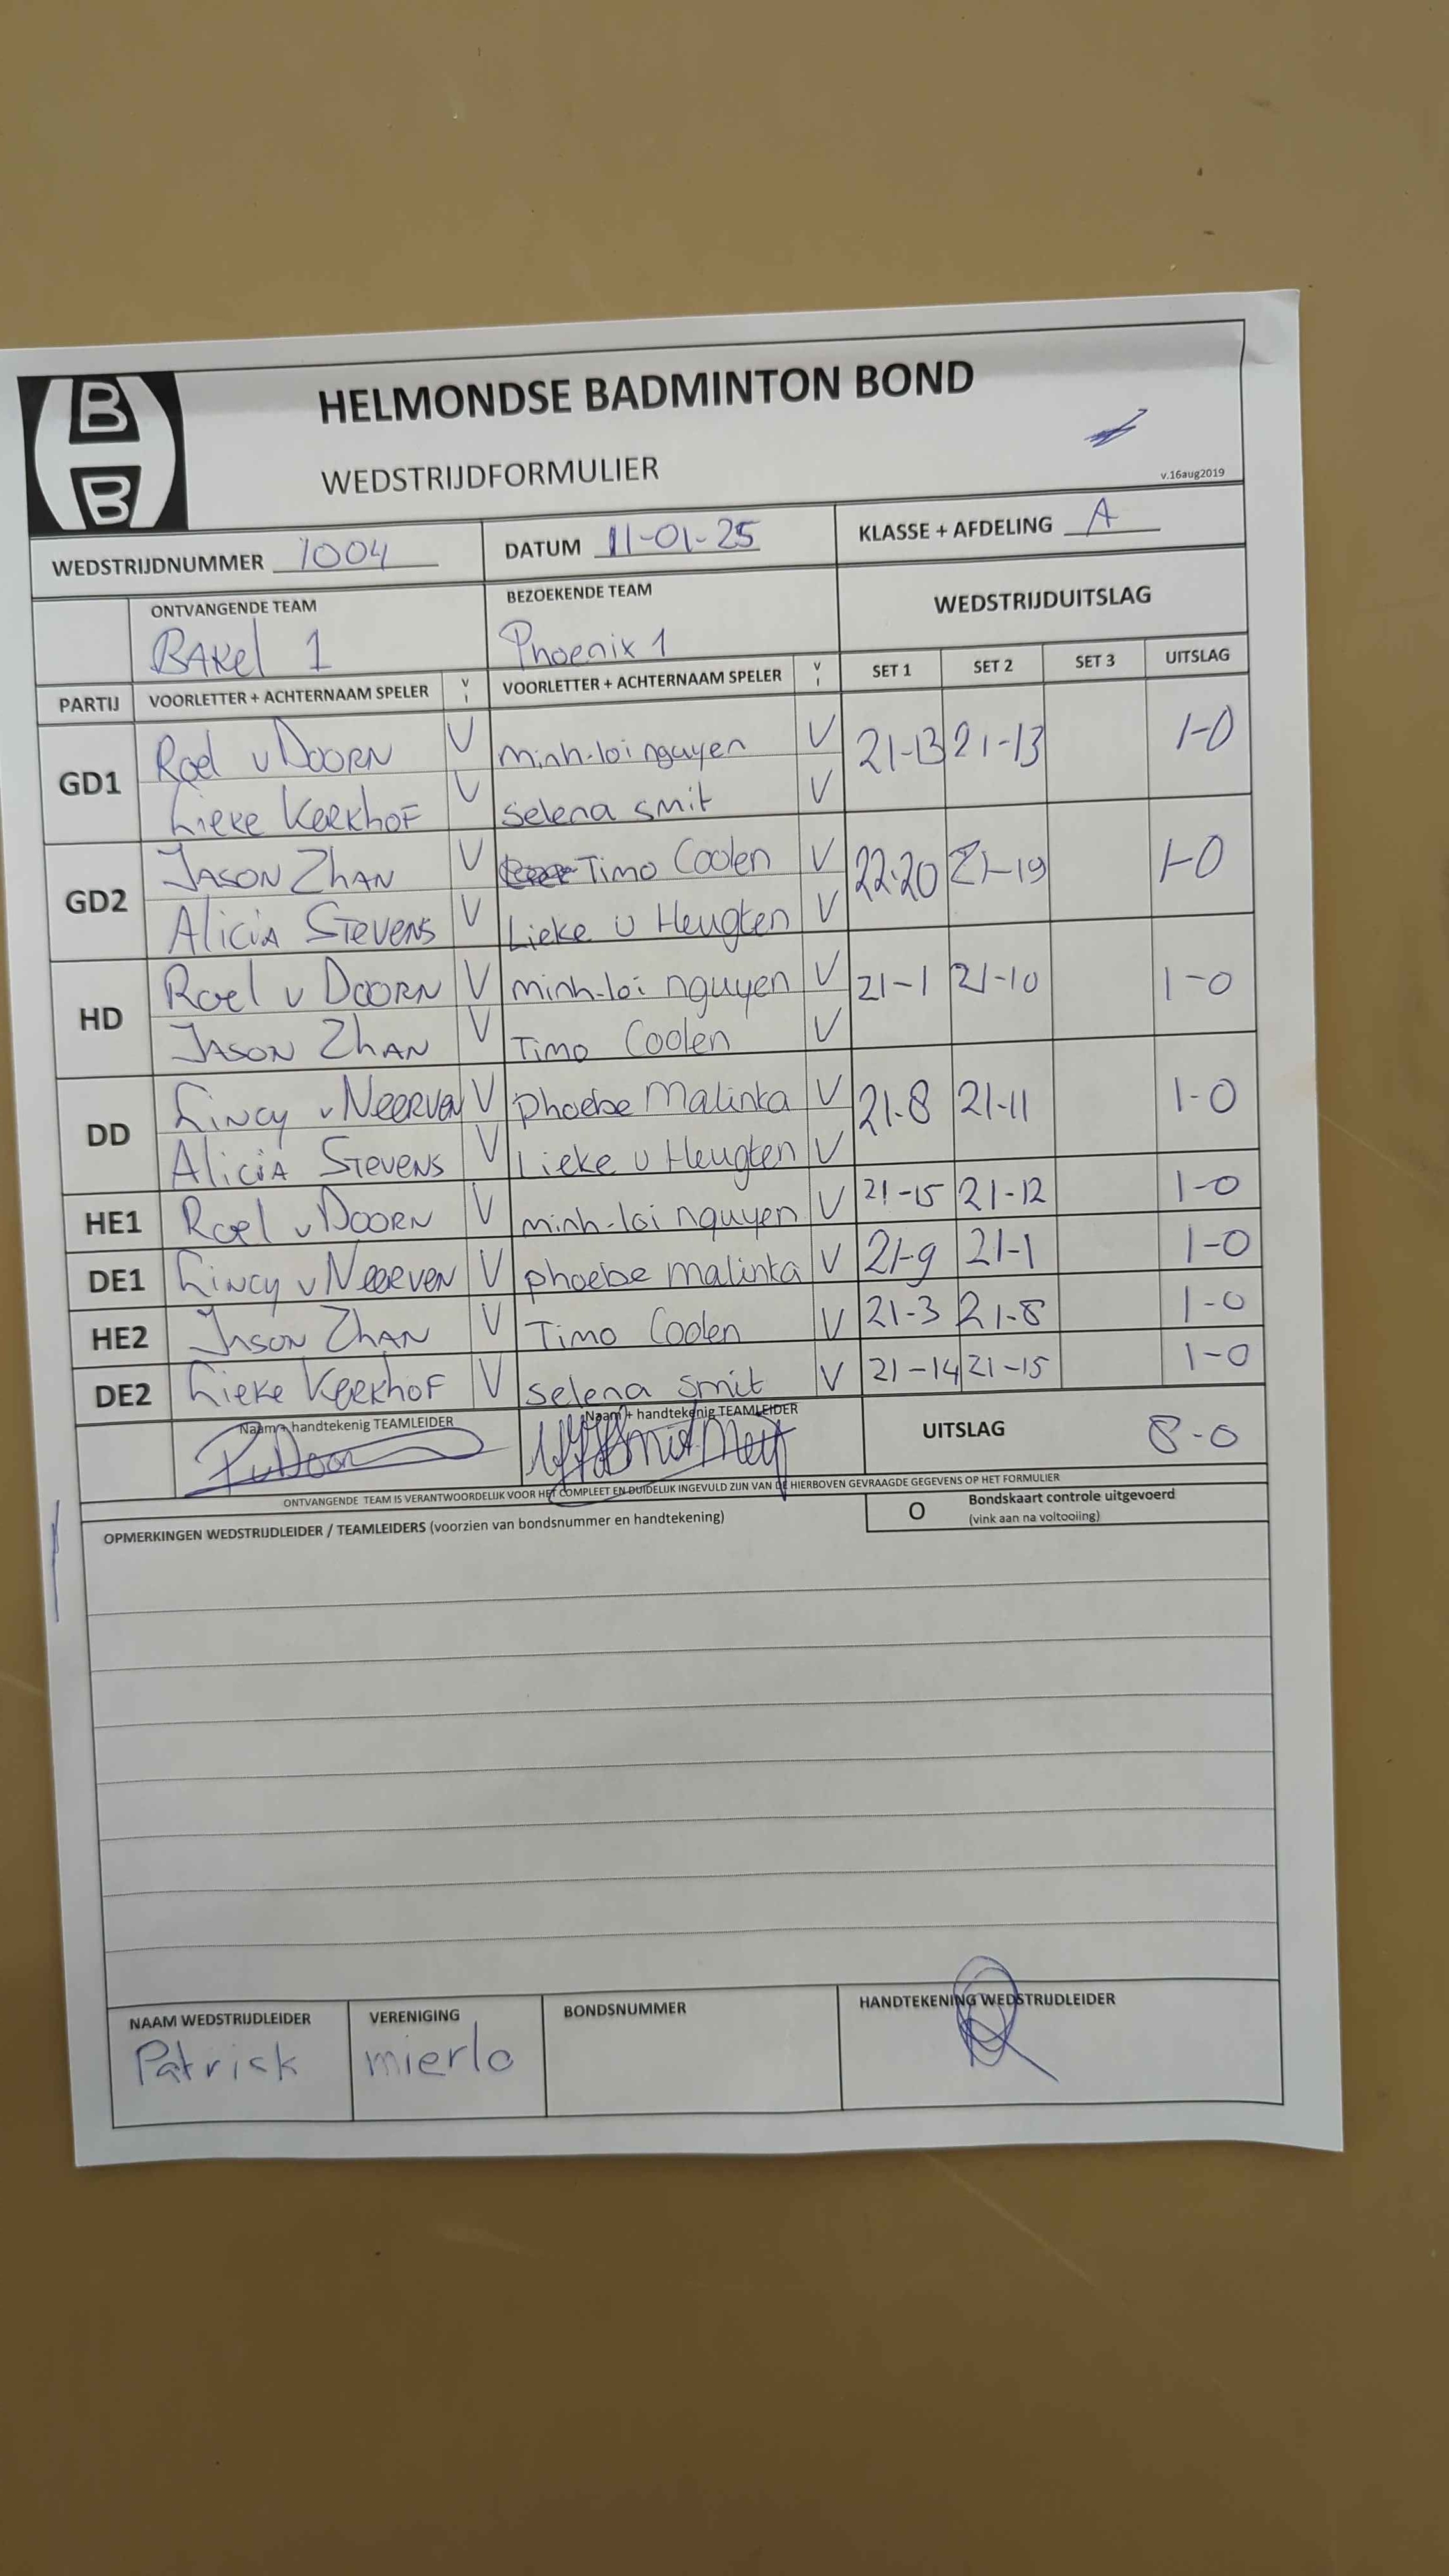 B
B
HELMONDSE BADMINTON BOND
WEDSTRIJDFORMULIER
v.16aug2019
WEDSTRIJDNUMMER 1004 DATUM 11-01-25 KLASSE + AFDELING A
ONTVANGENDE TEAM BEZOEKENDE TEAM WEDSTRIJDUITSLAG
BAKel 1 Phoenix 1
PARTIJ VOORLETTER + ACHTERNAAM SPELER V I VOORLETTER + ACHTERNAAM SPELER V I SET 1 SET 2 SET 3 UITSLAG
GD1 Roel v DOORN V minh-loi nguyen V 21-13 21-13 1-0
Lieke KerkhoF V selena smit V
GD2 JASON ZhAN V Timo Coolen V 22-20 21-19 1-0
AliciA STevens V Lieke v Heugten V
HD Roel v DOORN V minh-loi nguyen V 21-1 21-10 1-0
JASON ZhAN V Timo Coolen V
DD Lincy v Neerven V phoebe Malinka V 21-8 21-11 1-0
AliciA STevens V Lieke v Heugten V
HE1 Roel v DOORN V minh-loi nguyen V 21-15 21-12 1-0
DE1 Lincy v Neerven V phoebe malinka V 21-9 21-1 1-0
HE2 JASON ZhAN V Timo Coolen V 21-3 21-8 1-0
DE2 Lieke KerkhoF V selena smit V 21-14 21-15 1-0
Naam + handtekenig TEAMLEIDER Naam + handtekenig TEAMLEIDER UITSLAG 8-0
ONTVANGENDE TEAM IS VERANTWOORDELIJK VOOR HET COMPLEET EN DUIDELIJK INGEVULD ZIJN VAN DE HIERBOVEN GEVRAAGDE GEGEVENS OP HET FORMULIER
OPMERKINGEN WEDSTRIJDLEIDER / TEAMLEIDERS (voorzien van bondsnummer en handtekening) O Bondskaart controle uitgevoerd
(vink aan na voltooiing)
NAAM WEDSTRIJDLEIDER VERENIGING BONDSNUMMER HANDTEKENING WEDSTRIJDLEIDER
Patrick mierlo